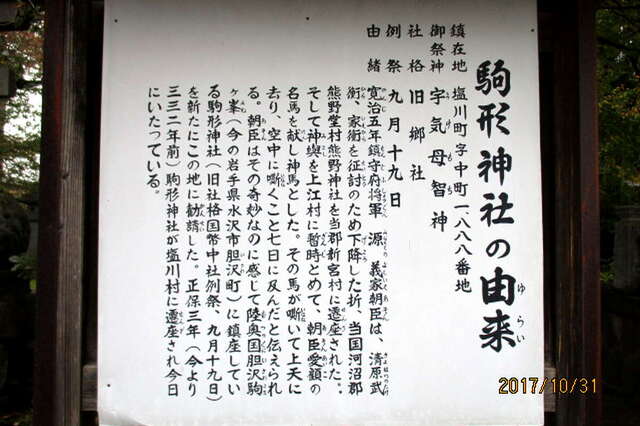 駒形神社の由来
ゆらい
鎮在地 塩川町字中町一、八八八番地
御祭神 宇気母智神
うけもち
社格 旧郷社
例祭 九月十九日
由緒 寛治五年鎮守府将軍 源 義家朝臣は、清原武
衡、家衡を征討のため下降した折、当国河沼郡
熊野堂村熊野神社を当郡新宮村に遷座された。
そして神輿を上江村に暫時とめて、朝臣愛顧の
名馬を献し神馬とした。その馬が嘶いて上天に
去り、空中に嘶くこと七日に及んだと伝えられ
る。朝臣はその奇妙なのに感じて陸奥国胆沢駒
ヶ峯(今の岩手県水沢市胆沢町)に鎮座してい
る駒形神社(旧社格国幣中社例祭、九月十九日)
を新たにこの地に勧請した。正保三年(今より
三三二年前)駒形神社が塩川村に遷座され今日
にいたっている。
2017/10/31